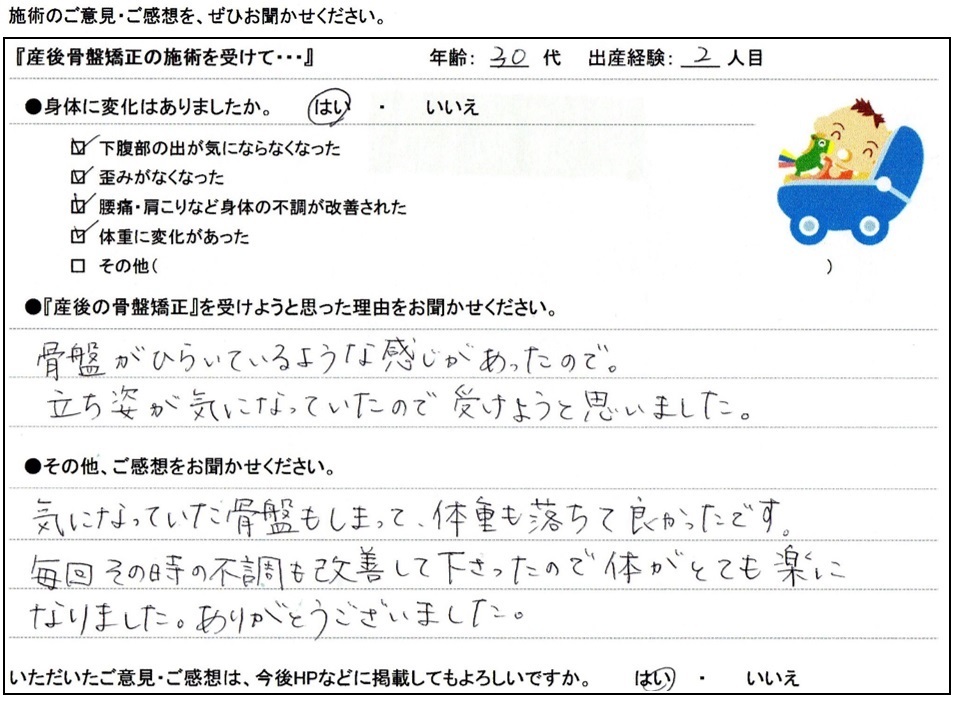 施術のご意見・ご感想を、ぜひお聞かせください。
『産後骨盤矯正の施術を受けて・・・』 年齢: 30 代 出産経験: 2 人目
●身体に変化はありましたか。 はい ・ いいえ
☑ 下腹部の出が気にならなくなった
☑ 歪みがなくなった
☑ 腰痛・肩こりなど身体の不調が改善された
☑ 体重に変化があった
□ その他( )
●『産後の骨盤矯正』を受けようと思った理由をお聞かせください。
骨盤がひらいているような感じがあったので。
立ち姿が気になっていたので受けようと思いました。
●その他、ご感想をお聞かせください。
気になっていた骨盤もしまって、体重も落ちて良かったです。
毎回その時の不調も改善して下さったので体がとても楽に
なりました。ありがとうございました。
いただいたご意見・ご感想は、今後HPなどに掲載してもよろしいですか。 はい ・ いいえ